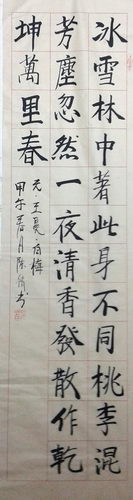 冰雪林中著此身不同桃李混
芳塵忽然一夜清香發散作乾
坤萬里春
元王冕梅
甲午春月陈书